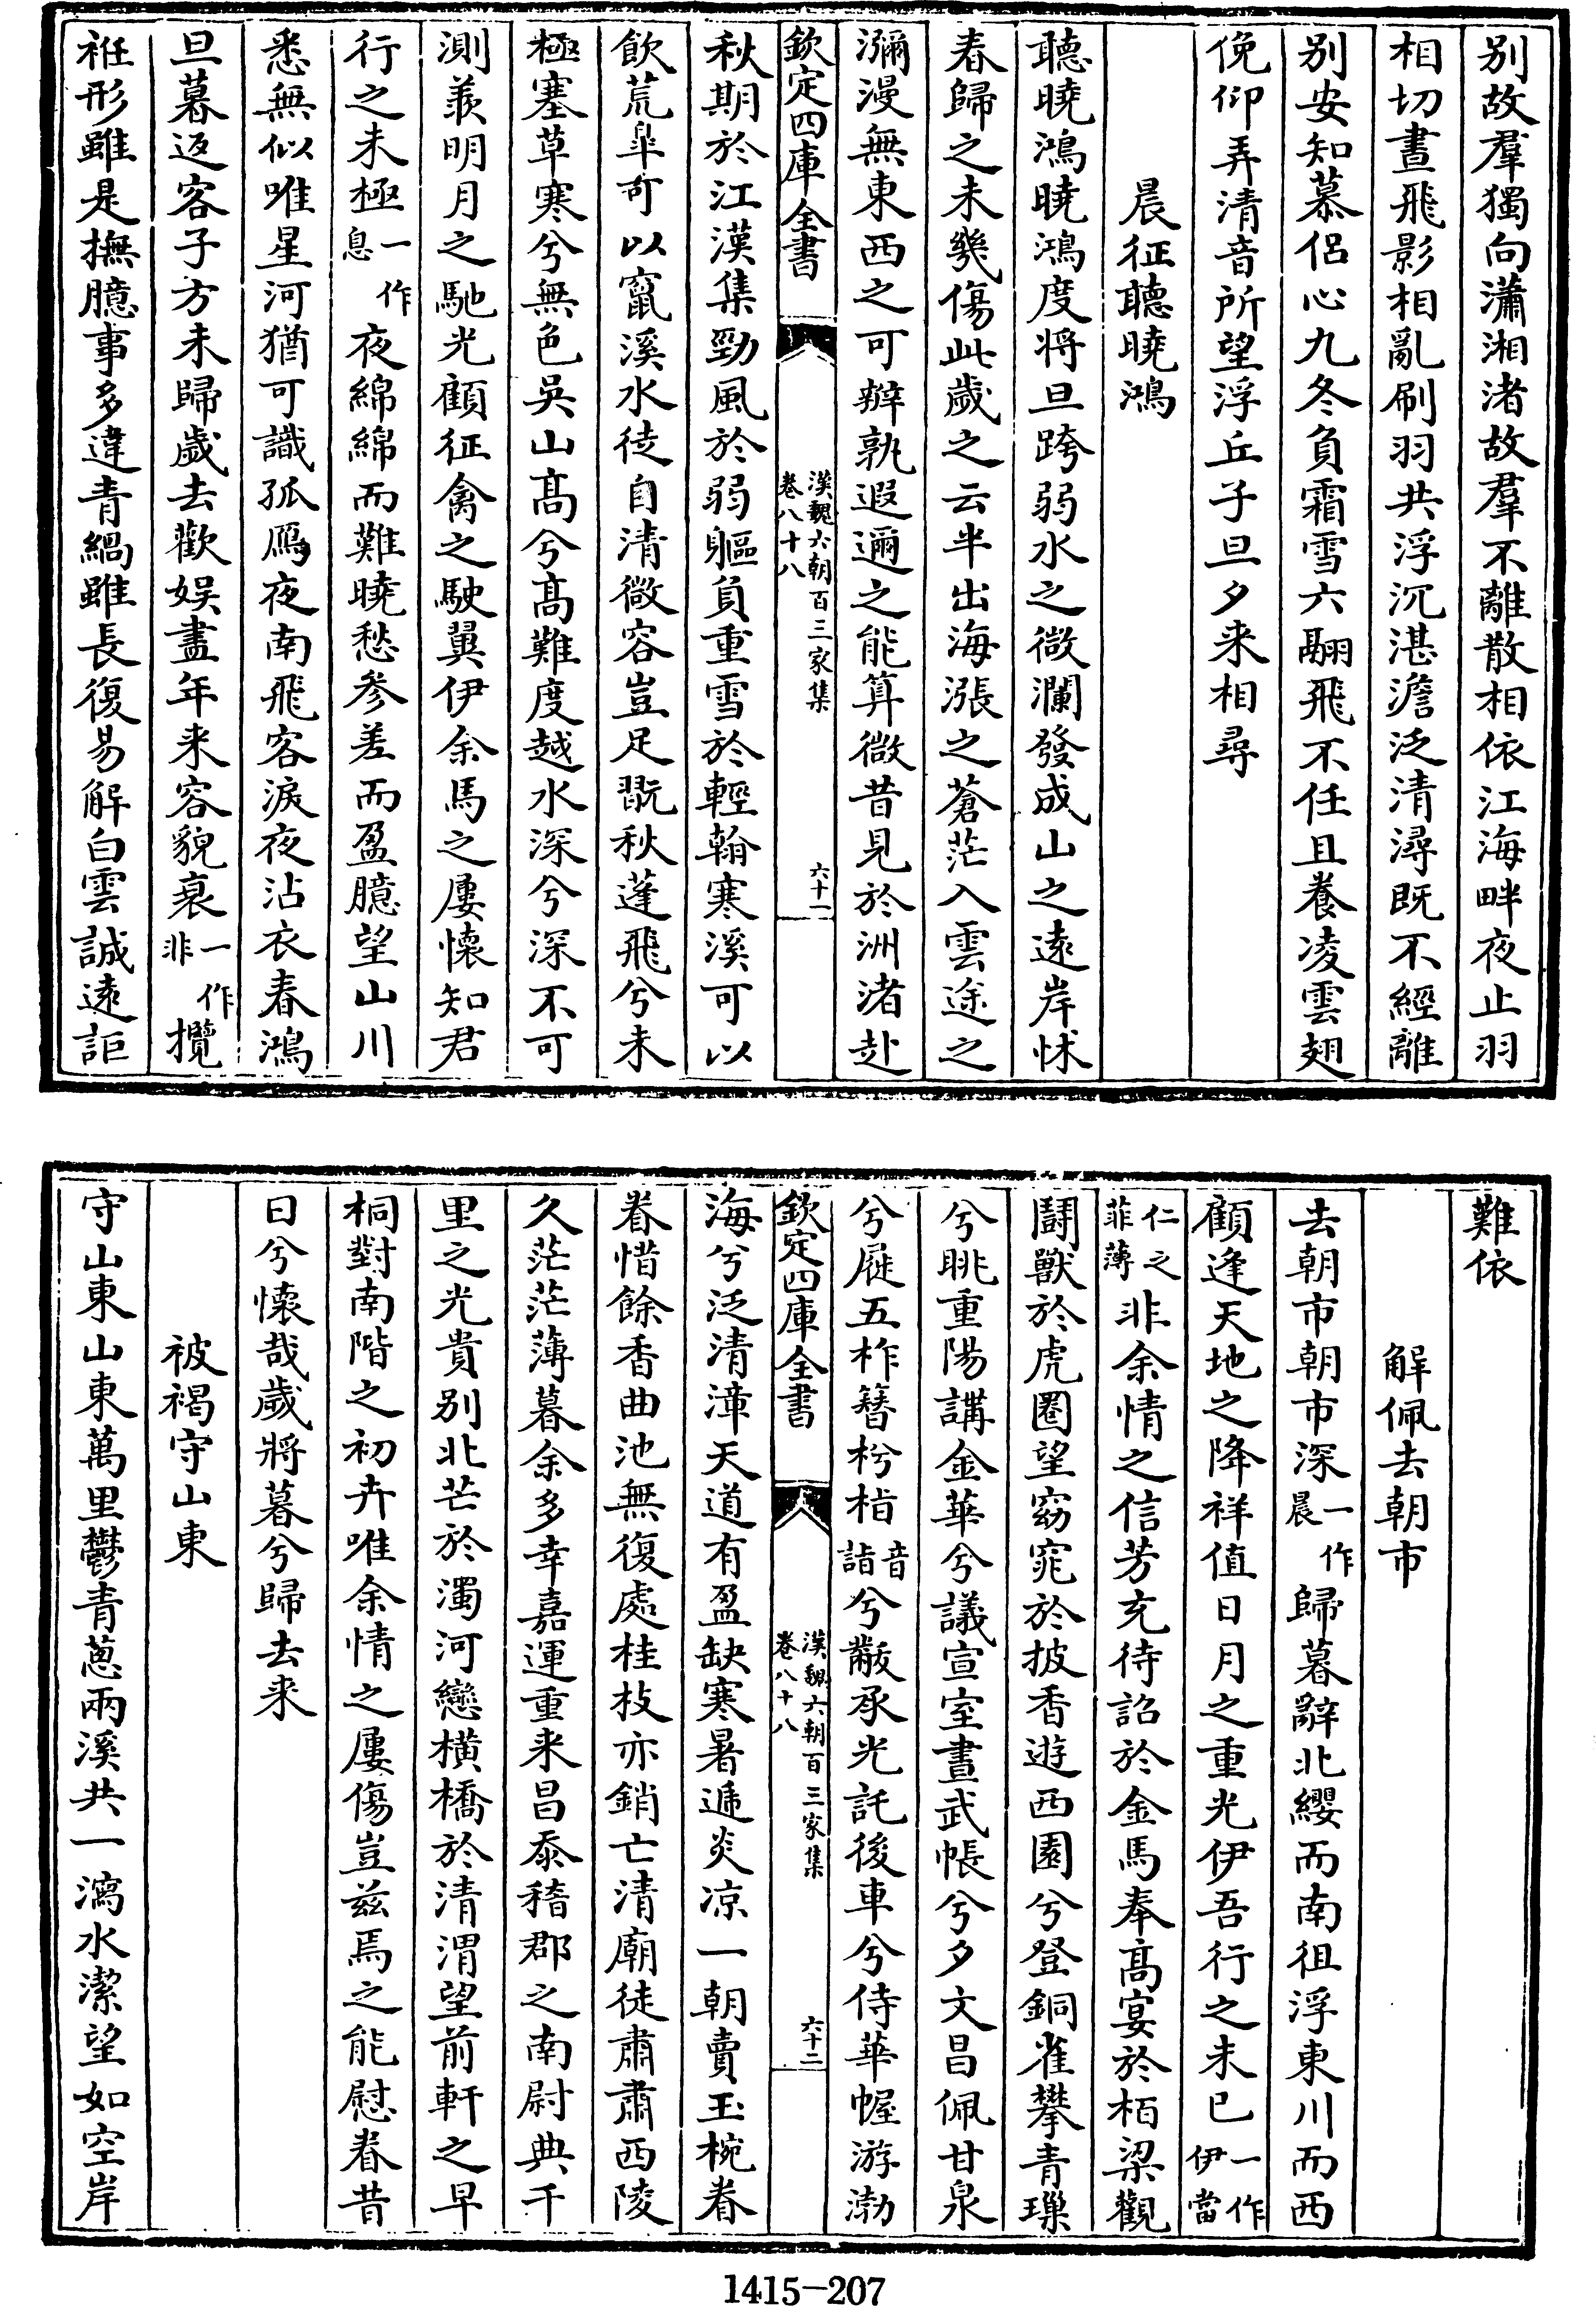 别故羣獨向瀟湘渚故羣不離散相依江海畔夜止羽
相切晝飛影相亂刷羽共浮沉湛澹泛清潯既不經離
别安知慕侣心九冬負霜雪六翮飛不任且養凌雲翅
俛仰弄清音所望浮丘子旦夕来相尋
晨征聽曉鴻
聽曉鴻曉鴻度将旦跨弱水之微瀾發成山之遠岸怵
春歸之未幾傷此歲之云半出海漲之蒼茫入雲途之
瀰漫無東西之可辨孰遐邇之能算微昔見於洲渚赴
欽定四庫全書
漢魏六朝百三家集
卷八十八
六十一
秋期於江漢集勁風於弱軀負重雪於輕翰寒溪可以
飲荒皐可以竄溪水徒自清微容豈足翫秋蓬飛兮未
極塞草寒兮無色吳山髙兮髙難度越水深兮深不可
測羨明月之馳光顧征禽之駛翼伊余馬之屢懷知君
行之未極一作息夜綿綿而難曉愁參差而盈臆望山川
悉無似唯星河猶可識孤鴈夜南飛客淚夜沾衣春鴻
旦暮返客子方未歸歲去歡娱盡年来容貌衰一作非攬
袵形雖是撫臆事多違青緺雖長復易解白雲誠遠詎
難依
解佩去朝市
去朝市朝市深一作晨歸暮辭北纓而南徂浮東川而西
顧逢天地之降祥值日月之重光伊吾行之未已一作伊當
仁之菲薄非余情之信芳充待詔於金馬奉髙宴於栢梁觀
鬪獸於虎圈望窈窕於披香遊西園兮登銅雀攀青瑣
兮眺重陽講金華兮議宣室晝武帳兮夕文昌佩甘泉
兮履五柞簪枍栺音詣兮黻承光託後車兮侍華幄游渤
欽定四庫全書
漢魏六朝百三家集
卷八十八
六十二
海兮泛清漳天道有盈缺寒暑遞炎凉一朝賣玉椀眷
眷惜餘香曲池無復處桂枝亦銷亡清廟徒肅肅西陵
久茫茫薄暮余多幸嘉運重来昌忝稽郡之南尉典千
里之光貴别北芒於濁河戀橫橋於清渭望前軒之早
桐對南階之初卉唯余情之屢傷豈兹焉之能慰眷昔
日兮懷哉歲將暮兮歸去来
被褐守山東
守山東山東萬里鬱青蔥兩溪共一瀉水潔望如空岸
1415—207